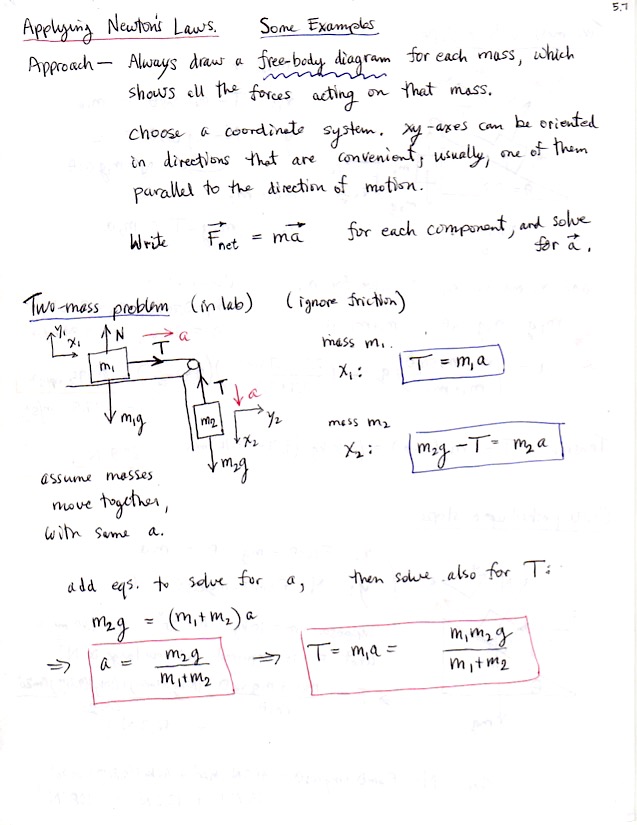 5.7
Applying Newton's Laws. Some Examples
Approach— Always draw a free-body diagram for each mass, which
shows all the forces acting on that mass.
choose a coordinate system. xy-axes can be oriented
in directions that are convenient, usually, one of them
parallel to the direction of motion.
Write F⃗net = ma⃗ for each component, and solve
for a⃗.
Two-mass problem (in lab) (ignore friction)
y₁ x₁ N T a
m₁
m₁g
T a
m₂ y₂
x₂
m₂g
mass m₁.
x₁: T = m₁a
mass m₂
x₂: m₂g - T = m₂a
assume masses
move together,
with same a.
add eqs. to solve for a, then solve also for T:
m₂g = (m₁+m₂)a
⇒ a = m₂g / m₁+m₂ ⇒ T = m₁a = m₁m₂g / m₁+m₂